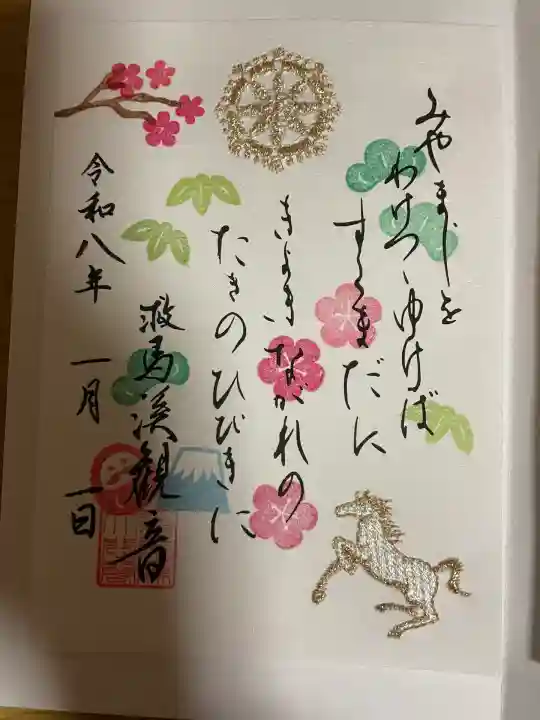 みやまじを
わけつゝゆけば
すくまだに
きよきながれの
たきのひびきに
救馬溪観音
令和八年 一月 一日